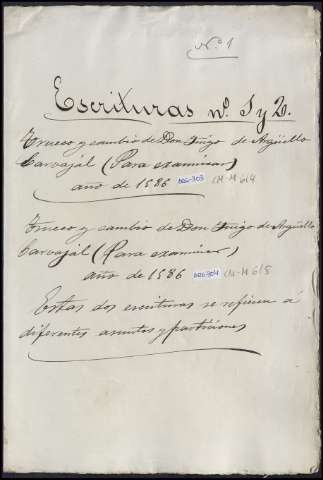 N.º 1
Escrituras nº. 1 y 2.
Trueco y cambio de Don Iñigo de Argüello
Carvajál (Para examinar)
año de 1586
Trueco y cambio de Don Iñigo de Argüello
Carvajál (Para examinar)
año de 1586
Estas dos escrituras se refieren á
diferentes asuntos y particiones